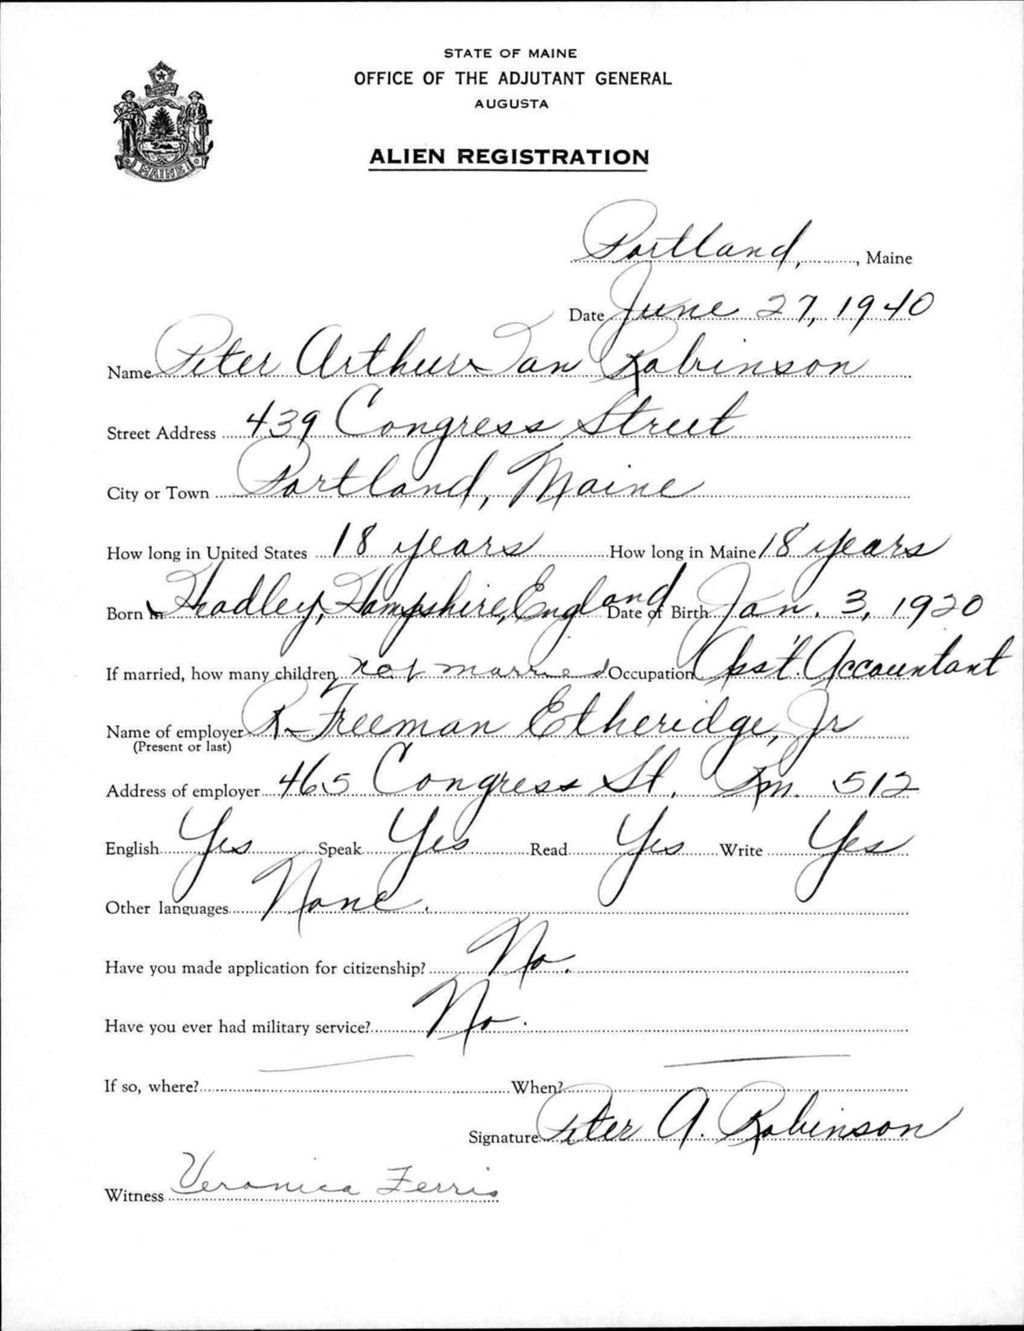 STATE OF MAINE
OFFICE OF THE ADJUTANT GENERAL
AUGUSTA
MAINE
ALIEN REGISTRATION
Portland, , Maine
Date June 27, 1940
Name Peter Arthur Ian Robinson
Street Address 439 Congress Street
City or Town Portland, Maine
How long in United States 18 years How long in Maine 18 years
Born in Headley, Hampshire, England Date of Birth Jan. 3, 1920
If married, how many children not married Occupation Ass't. Accountant
Name of employer R. Freeman Etheridge, Jr
(Present or last)
Address of employer 465 Congress St. Rm. 512
English Yes Speak Yes Read Yes Write Yes
Other languages None.
Have you made application for citizenship? No.
Have you ever had military service? No.
If so, where? When?
Signature Peter A. Robinson
Witness Veronica Ferris